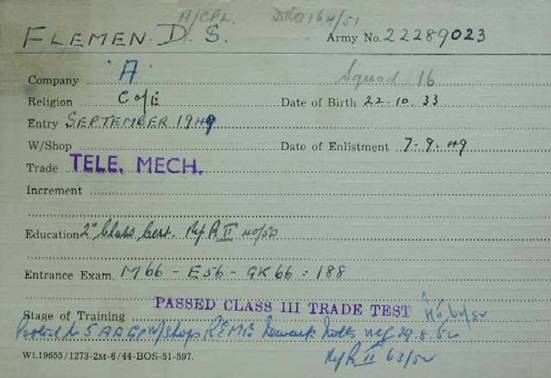 A/CPL. DRO 164/51
FLEMEN. D. S. Army No. 22289023
Company 'A' Squad 16
Religion C of E Date of Birth 22.10.33
Entry SEPTEMBER 1949
W/Shop Date of Enlistment 7.9.49
Trade TELE. MECH.
Increment
Education 2nd Class Cert. Pt II 40/50
Entrance Exam. M66 - E56 - GK66 = 188
PASSED CLASS III TRADE TEST 60/52
Stage of Training
Posted to 5 AA Gp W/shops REME Newark Notts wef 29.8.52
Wt.19655/1273-2M-6/44-BOS-51-597. Pt II 63/52